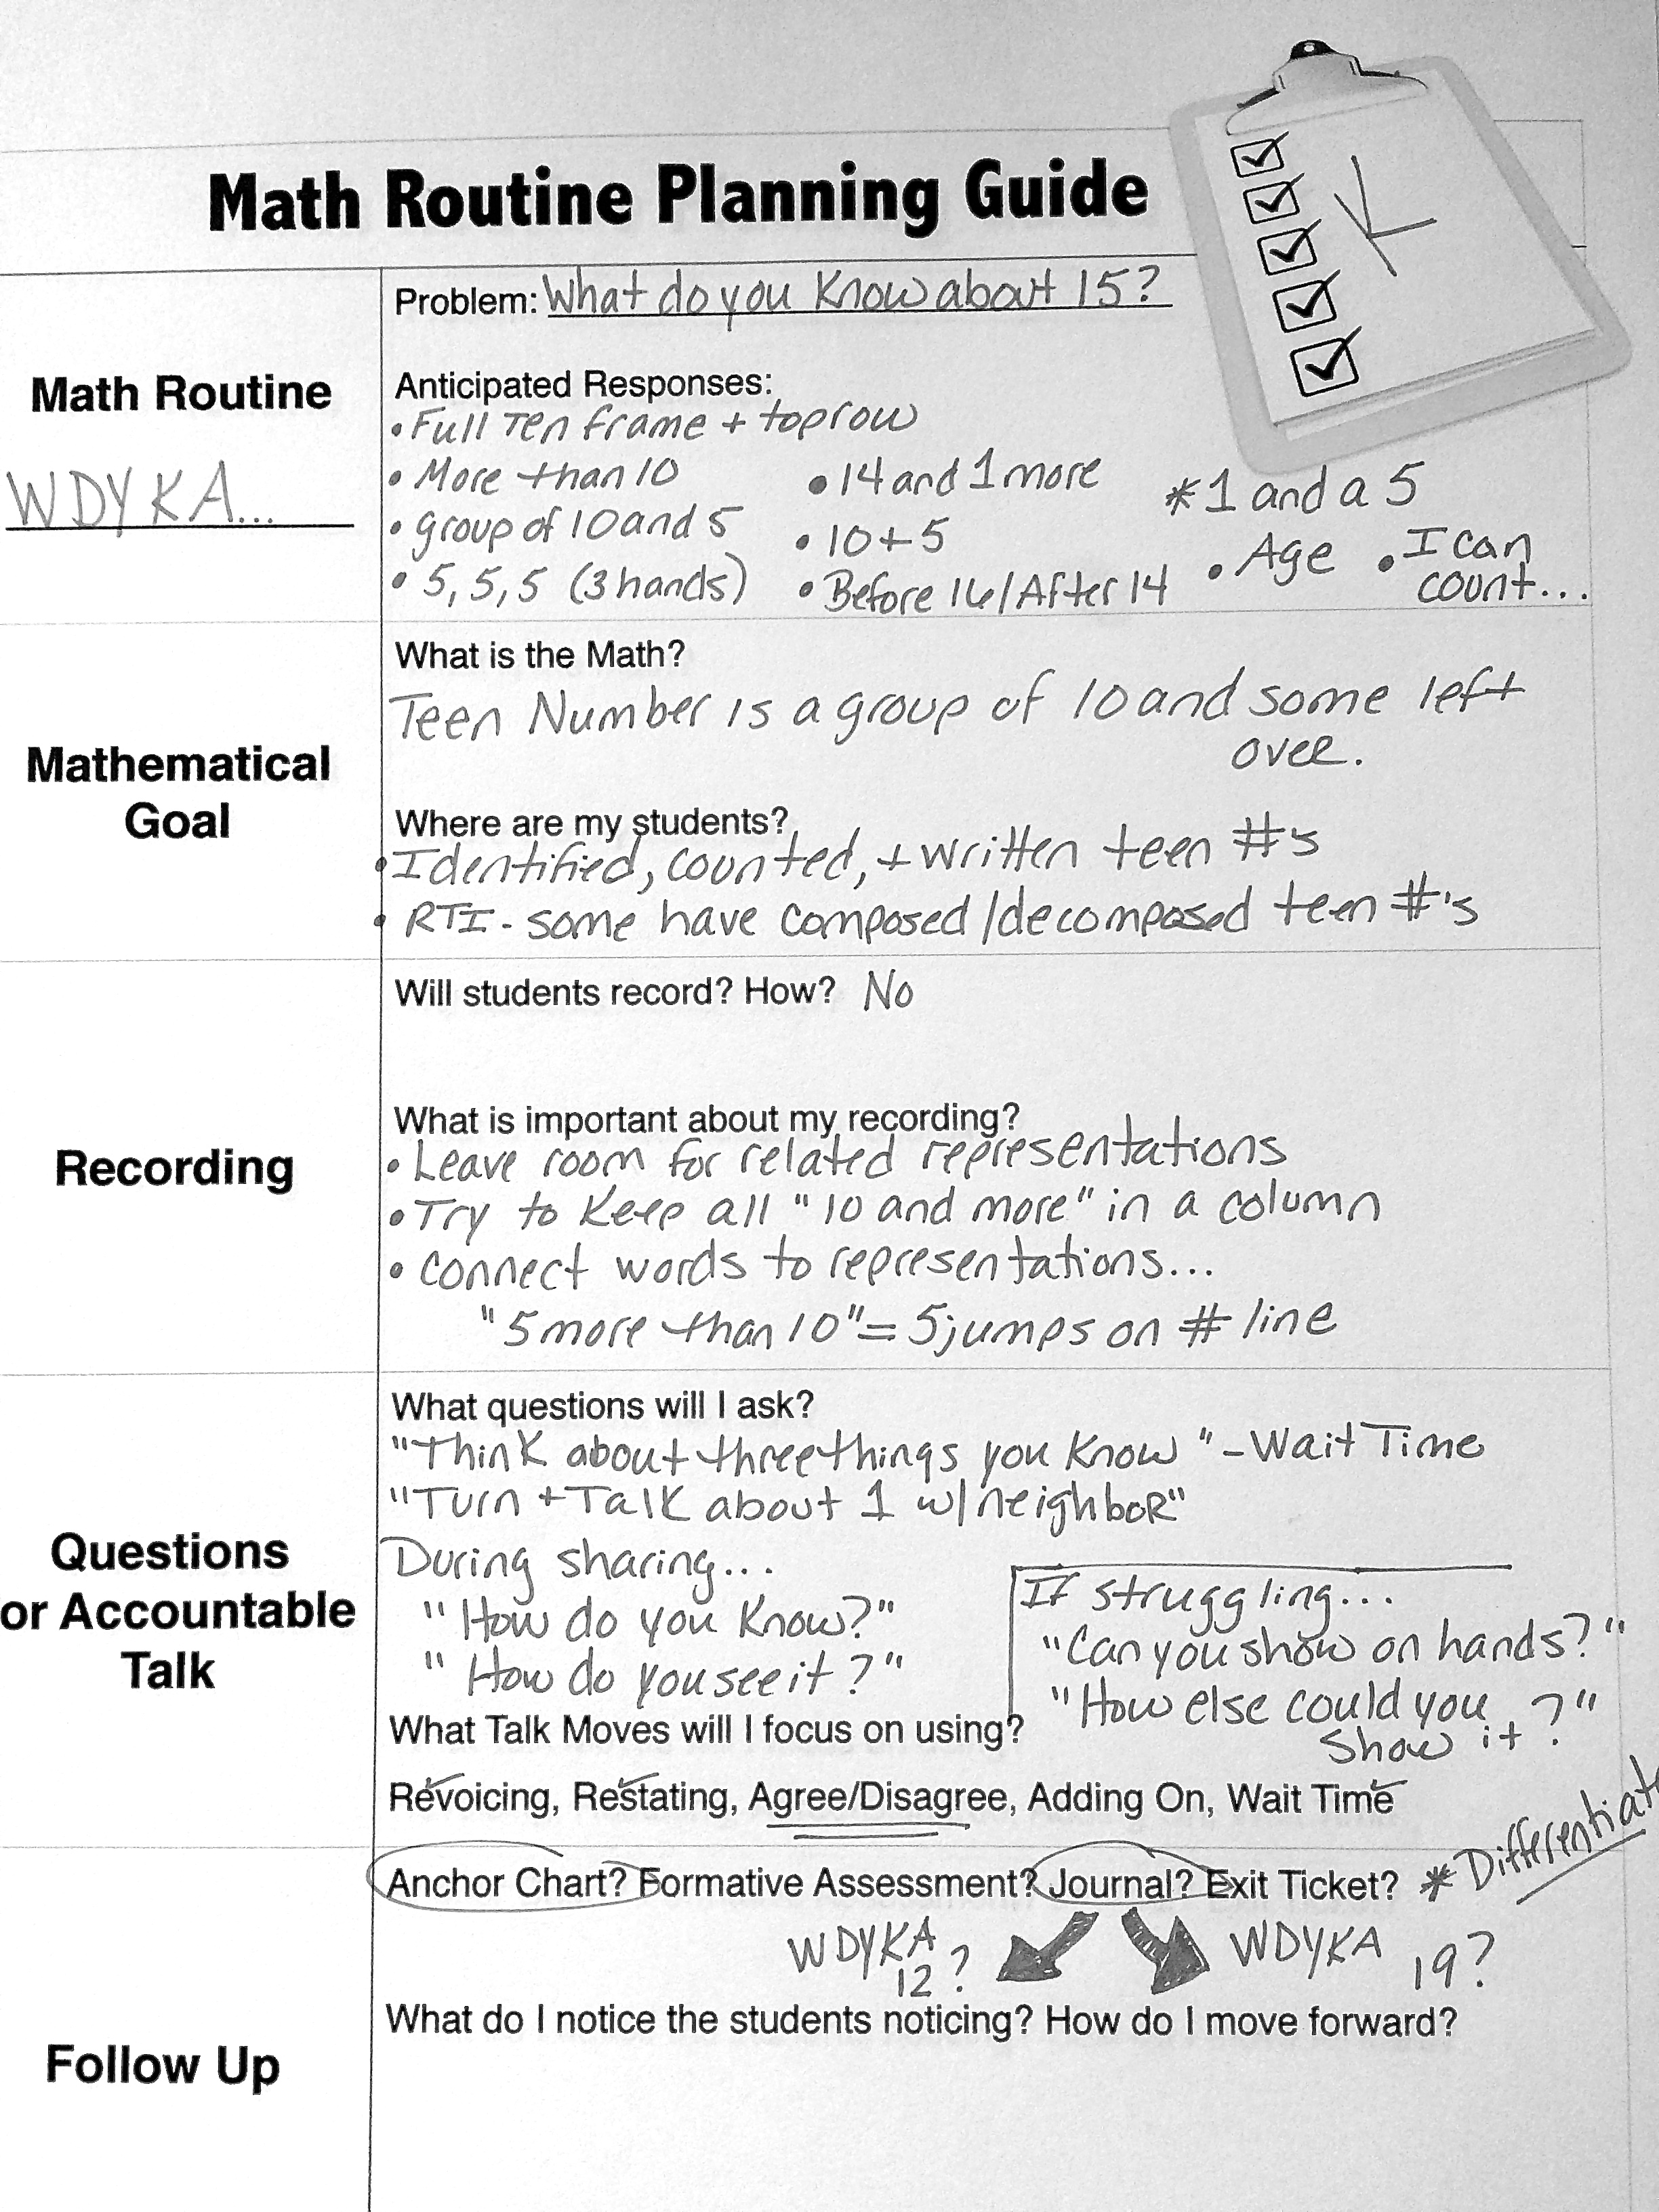 Math Routine Planning Guide
K
Problem: What do you know about 15?
Math Routine
WDYKA...
Anticipated Responses:
• Full Ten frame + top row
• More than 10
• group of 10 and 5
• 5, 5, 5 (3 hands)
• 14 and 1 more
• 10+5
• Before 16/After 14
*1 and a 5
• Age
• I can
count...
Mathematical
Goal
What is the Math?
Teen Number is a group of 10 and some left
over.
Where are my students?
• Identified, counted, + written teen #'s
• RTI - some have composed/decomposed teen #'s
Recording
Will students record? How? No
What is important about my recording?
• Leave room for related representations
• Try to keep all "10 and more" in a column
• connect words to representations...
"5 more than 10" = 5 jumps on # line
Questions
or Accountable
Talk
What questions will I ask?
"Think about three things you know" - Wait Time
"Turn + Talk about 1 w/ neighbor"
During sharing...
"How do you know?"
"How do you see it?"
If struggling...
"Can you show on hands?"
"How else could you
show it?"
What Talk Moves will I focus on using?
Revoicing, Restating, Agree/Disagree, Adding On, Wait Time
Follow Up
Anchor Chart? Formative Assessment? Journal? Exit Ticket? * Differentiate
WDYKA
12?
WDYKA 19?
What do I notice the students noticing? How do I move forward?